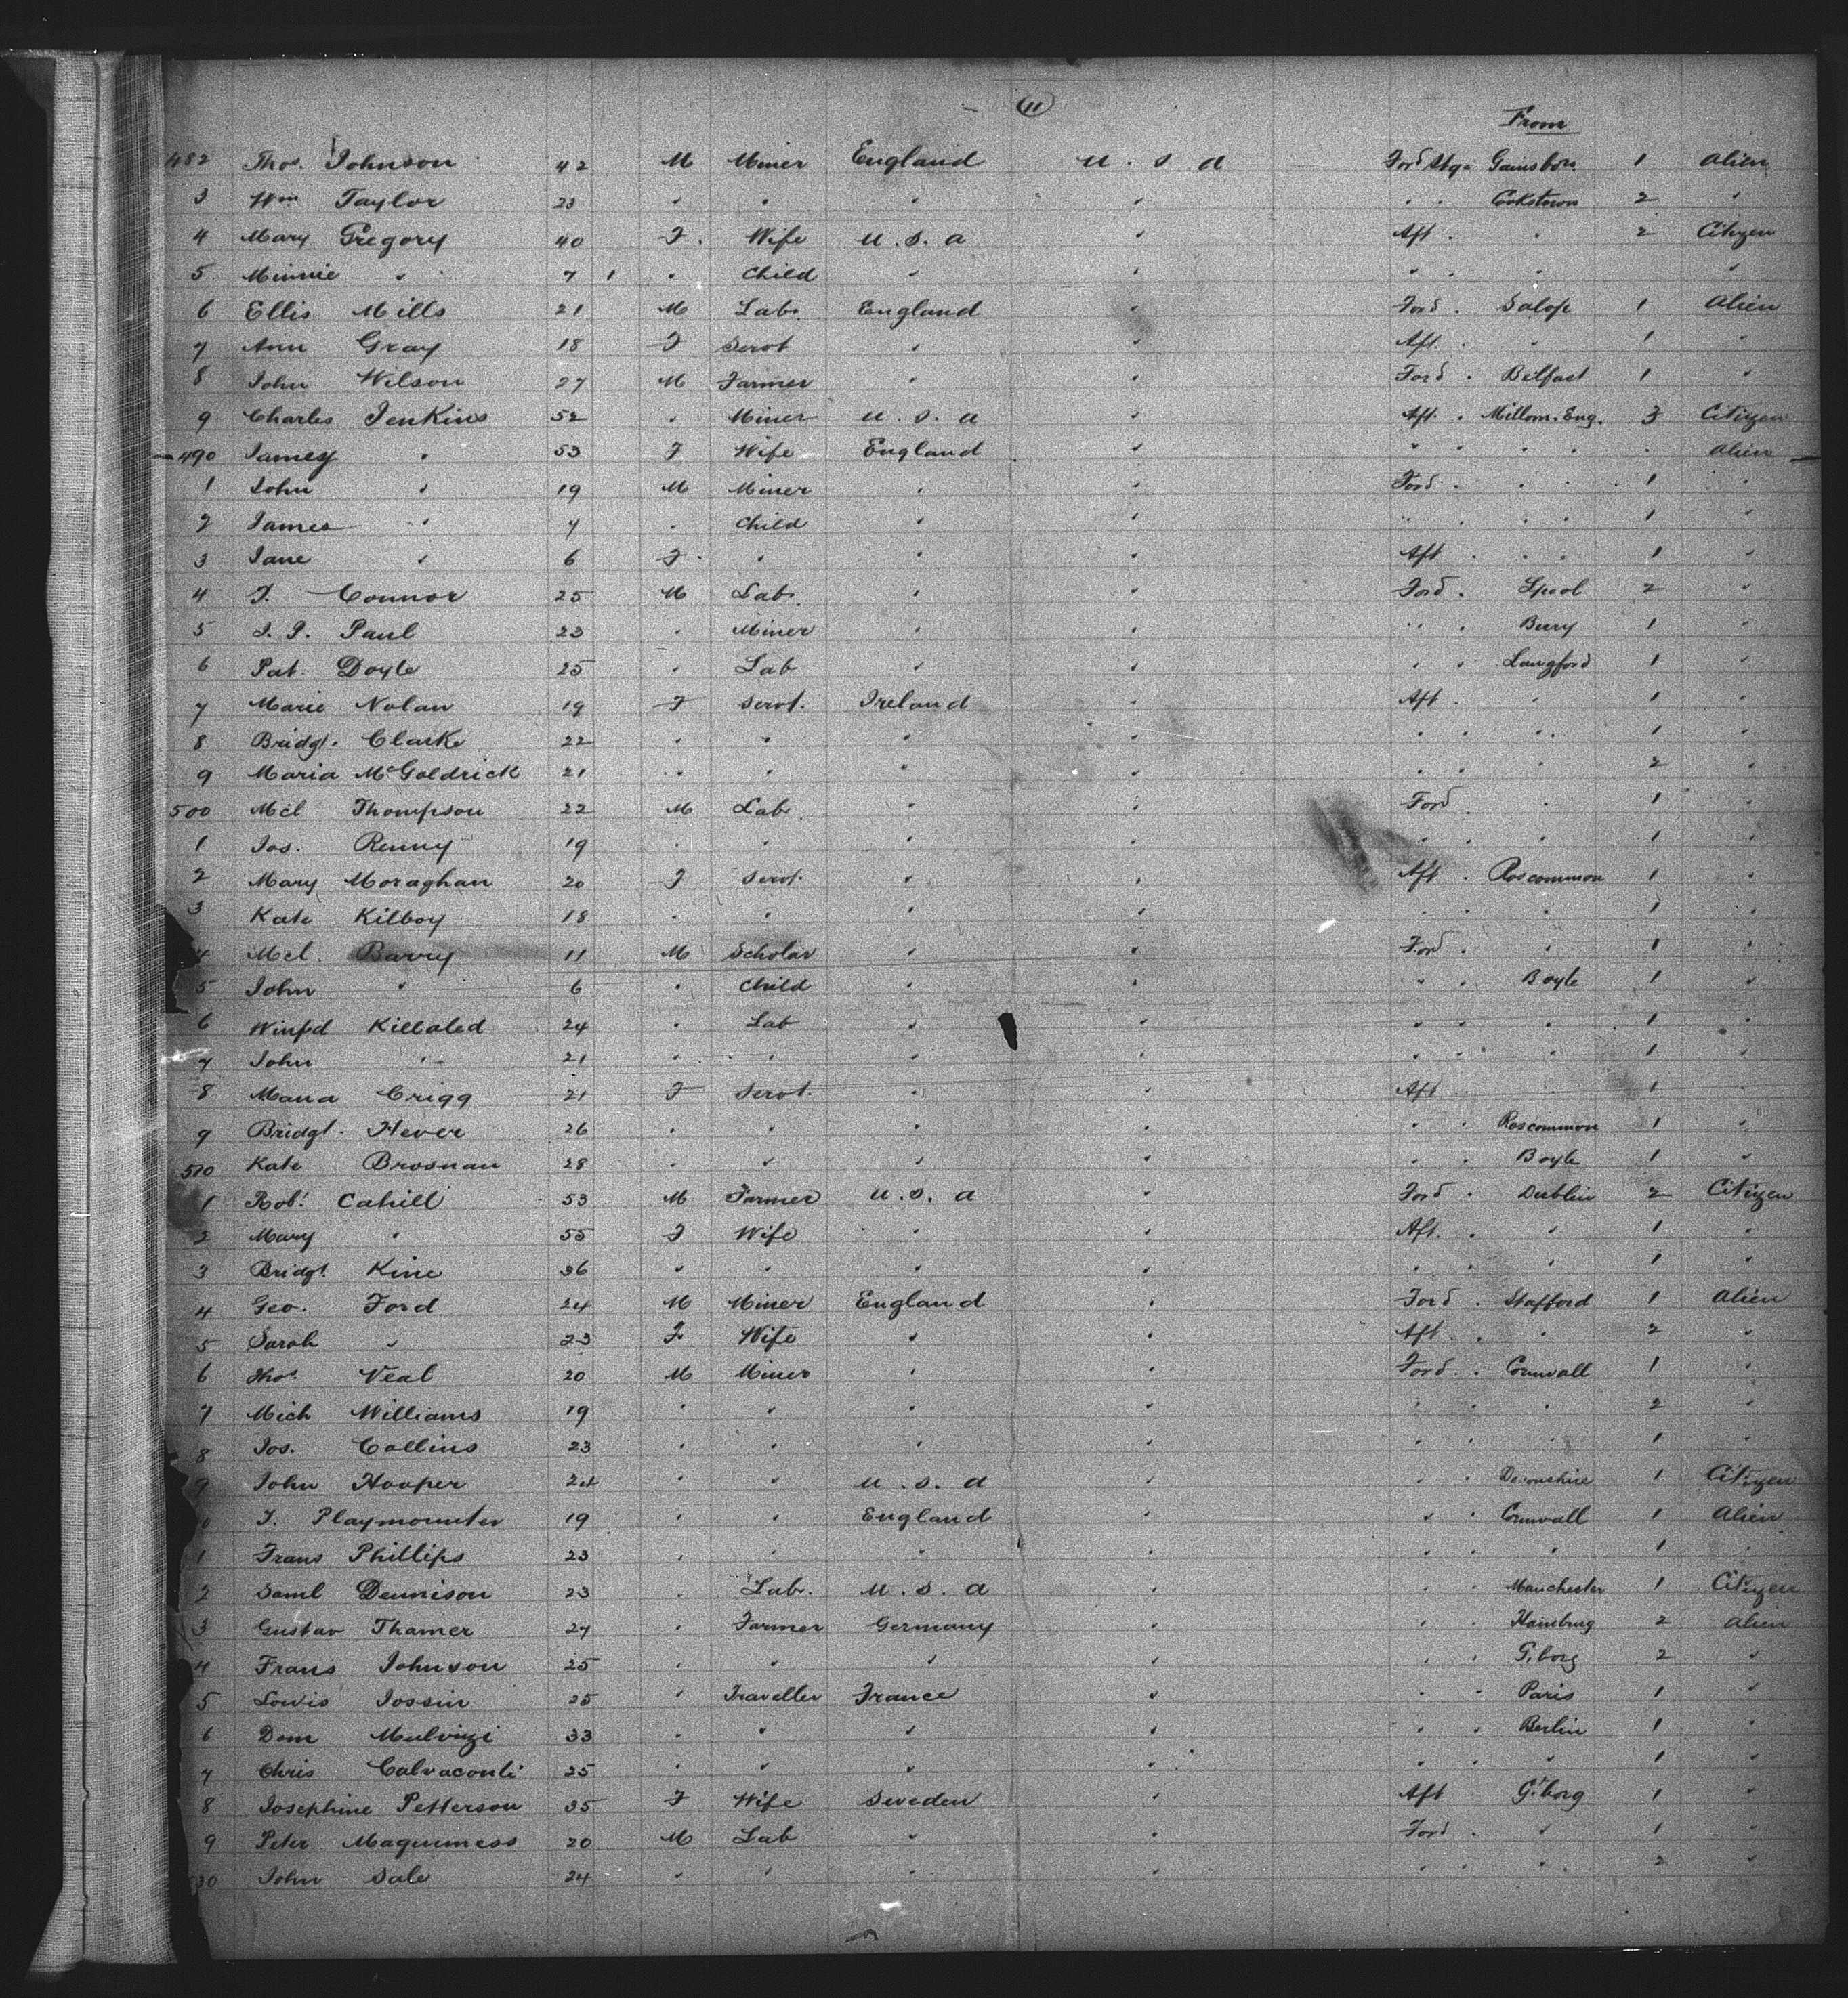 11
From
482 Thos. Johnson 42 M Miner England U.S.A Ford Stge Gainsboro. 1 Alien
3 Wm Taylor 23 " " " " " " Cookstown 2 "
4 Mary Gregory 40 F. Wife U.S.A " Aft. " 2 Citizen
5 Minnie " 7 " Child " " " " " "
6 Ellis Mills 21 M Lab. England " Ford. Salop 1 Alien
7 Ann Gray 18 F Servt " " Aft. " 1 "
8 John Wilson 27 M Farmer " " Ford. Belfast 1 "
9 Charles Jenkins 52 " Miner U.S.A " Aft. Millom. Eng. 3 Citizen
490 Jamey " 53 F Wife England " " " " " Alien
1 John " 19 M Miner " " Ford. " " 1 "
2 James " 7 " Child " " " " " 1 "
3 Jane " 6 F. " " " Aft. " " 1 "
4 J. Connor 25 M Lab. " " Ford. Lpool 2 "
5 J. P. Paul 23 " Miner " " " " Bury 1 "
6 Pat. Doyle 25 " Lab " " " " Langford 1 "
7 Marie Nolan 19 F Servt. Ireland " Aft. " 1 "
8 Bridgt. Clarke 22 " " " " " " " 1 "
9 Maria McGoldrick 21 " " " " " " " 2 "
500 Mcl Thompson 22 M Lab. " " Ford. " 1 "
1 Jos. Renny 19 " " " " " " " 1 "
2 Mary Moraghan 20 F Servt. " " Aft. Roscommon 1 "
3 Kate Kilboy 18 " " " " " " " 1 "
4 Mcl. Barry 11 M Scholar " " Ford. " 1 "
5 John " 6 " Child " " " " Boyle 1 "
6 Winfd Killaled 24 " Lab " " " " " 1 "
7 John " 21 " " " " " " " 1 "
8 Maria Crigg 21 F Servt. " " Aft " 1 "
9 Bridgt. Hever 26 " " " " " " Roscommon 1 "
510 Kate Brosnan 28 " " " " " " Boyle 1 "
1 Robt. Cahill 53 M Farmer U.S.A " Ford. Dublin 2 Citizen
2 Mary " 55 F Wife " " Aft. " 1 "
3 Bridgt. Kine 36 " " " " " " " 1 "
4 Geo. Ford 24 M Miner England " Ford. Stafford 1 Alien
5 Sarah " 23 F Wife " " Aft. " 2 "
6 Thos. Veal 20 M Miner " " Ford. Cornwall 1 "
7 Mich Williams 19 " " " " " " " 2 "
8 Jos. Collins 23 " " " " " " " 1 "
9 John Hooper 24 " " U.S.A " " " Devonshire 1 Citizen
0 J. Playmounter 19 " " England " " " Cornwall 1 Alien
1 Frans Phillips 23 " " " " " " " 1 "
2 Saml Dennison 23 " Lab. U.S.A " " " Manchester 1 Citizen
3 Gustav Thamer 27 " Farmer Germany " " " Hamburg 2 Alien
4 Frans Johnson 25 " " " " " " G.borg 2 "
5 Lowis Jossin 25 " Traveller France " " " Paris 1 "
6 Dom 33 " " " " " " Berlin 1 "
7 Chris Calvaconti 25 " " " " " " " 1 "
8 Josephine Petterson 35 F Wife Sweden " Aft G.borg 1 "
9 Peter Maguiness 20 M Lab " " Ford. " 1 "
30 John Sale 24 " " " " " " " 2 "